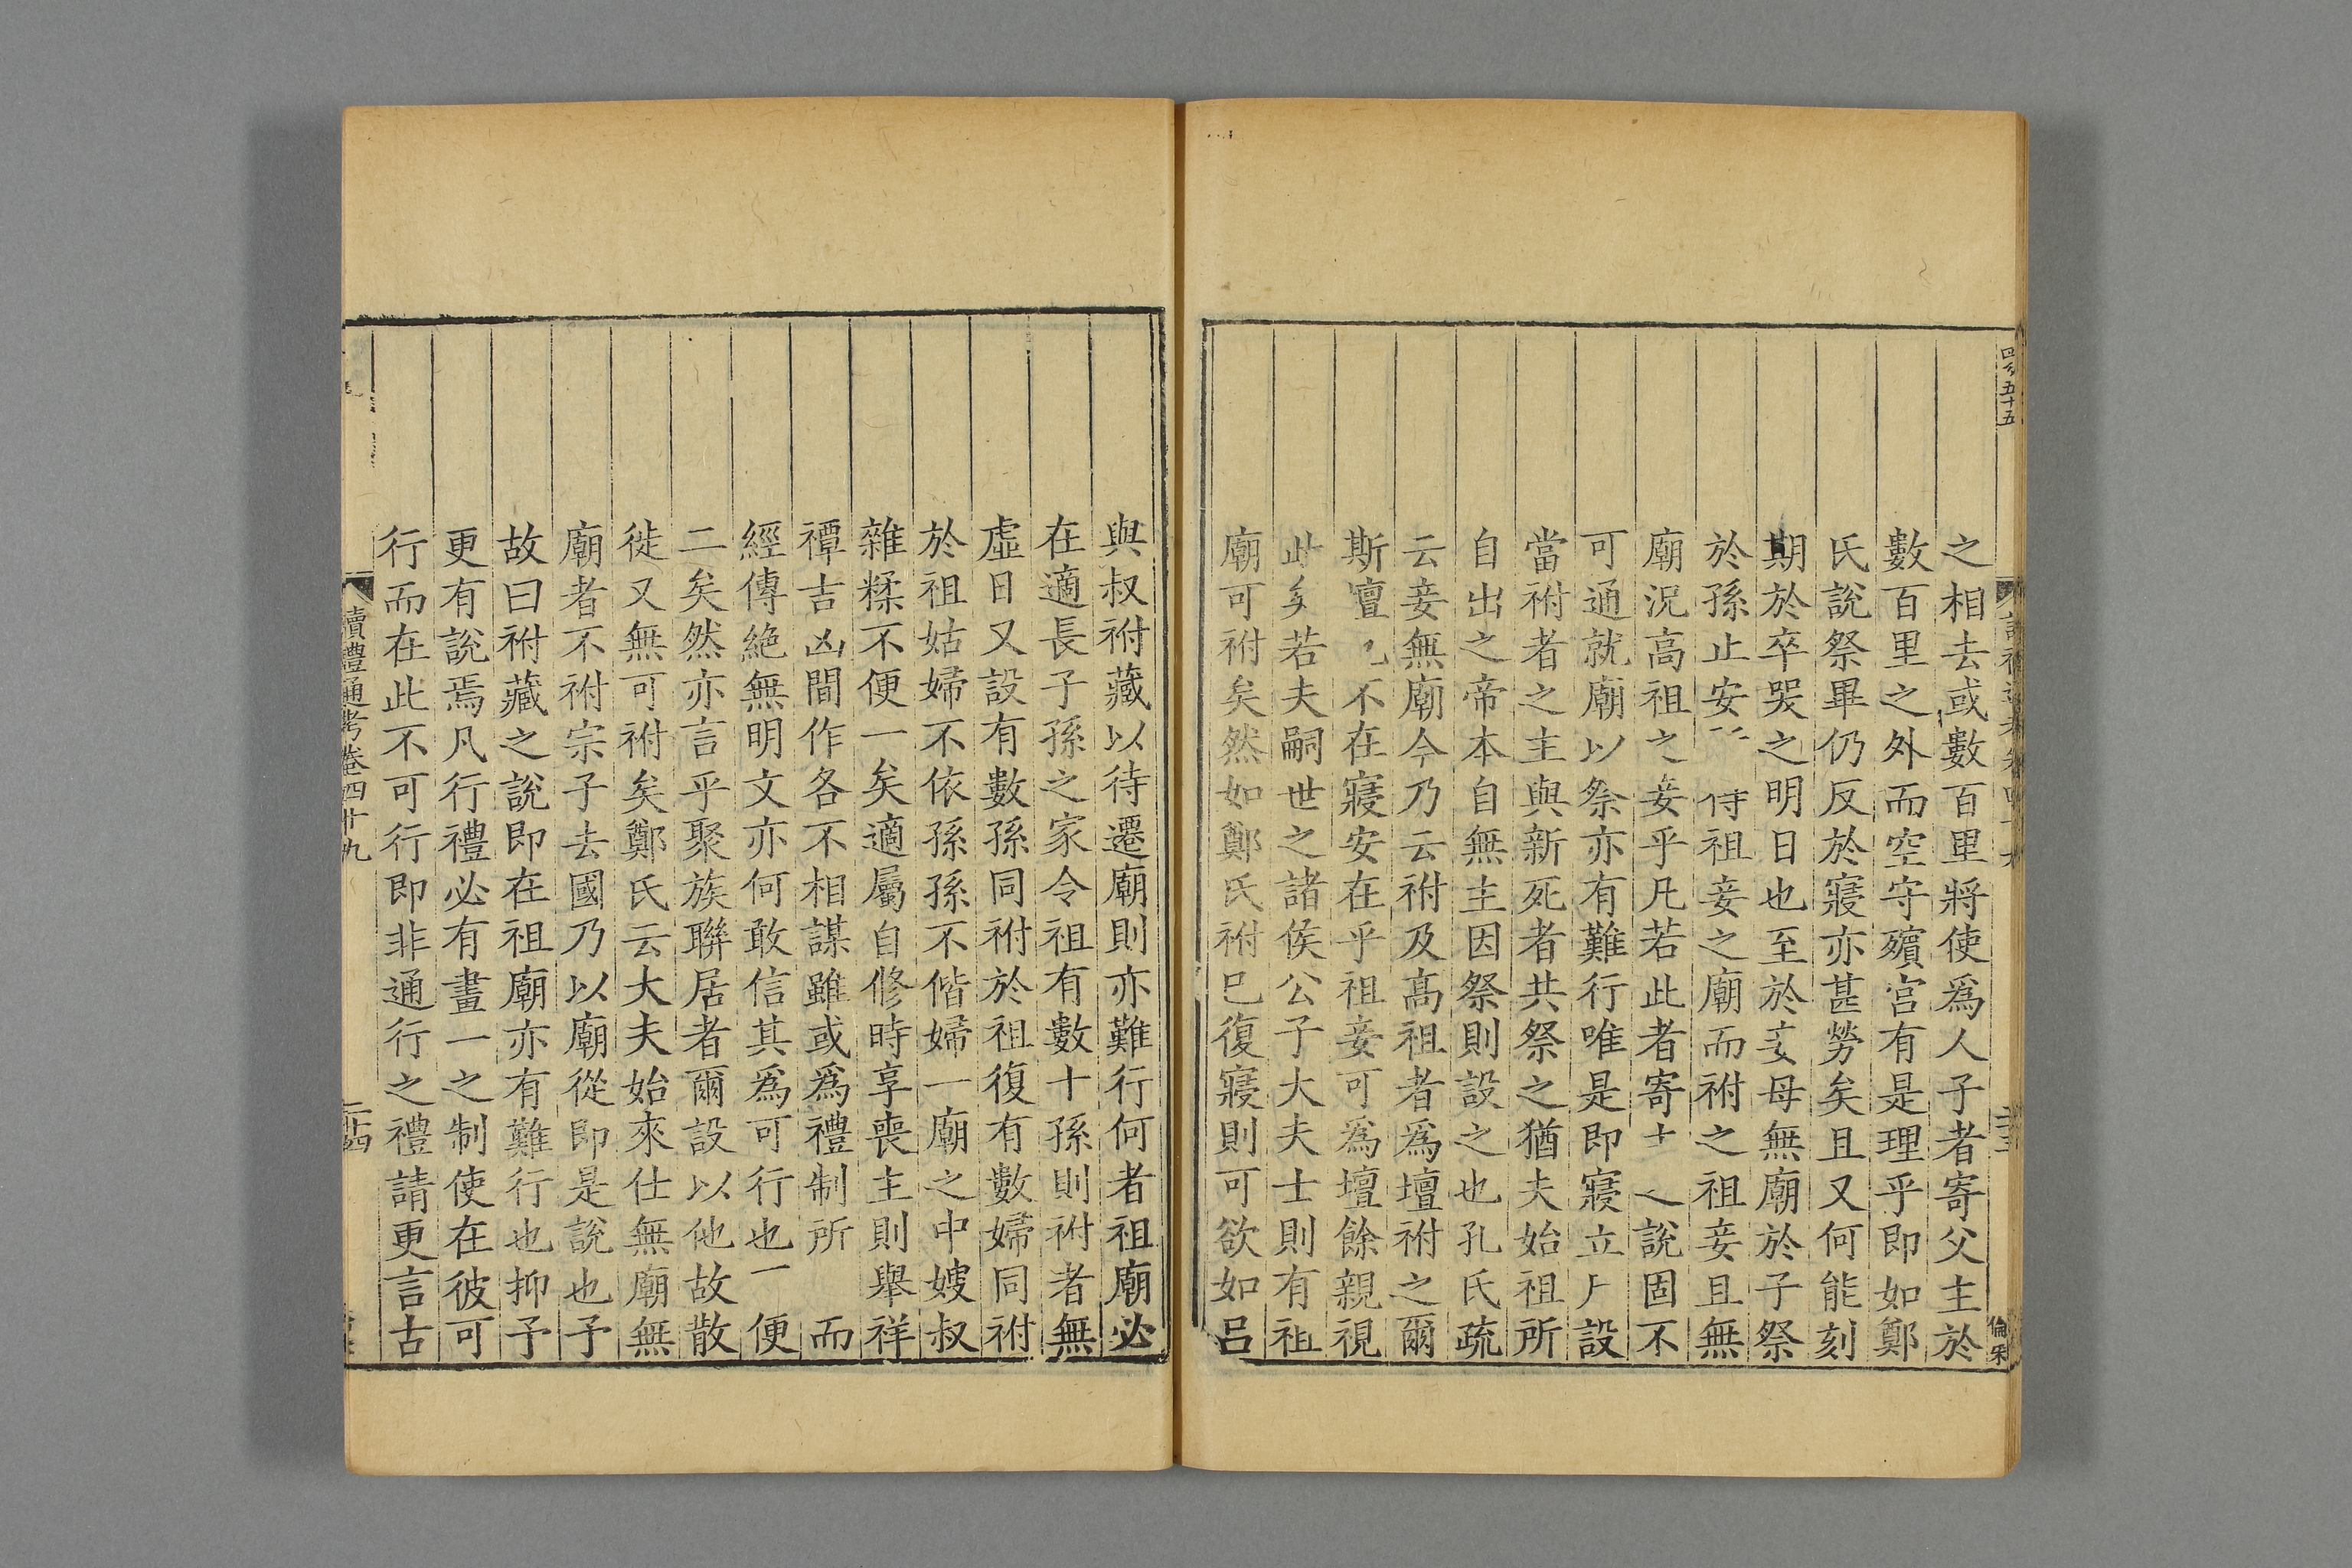 之相去或數百里將使爲人子者寄父主於
數百里之外而空守殯宮有是理乎即如鄭
氏說祭畢仍反於寢亦甚勞矣且又何能刻
期於卒哭之明日也至於妾母無廟於子祭
於孫止安 侍祖妾之廟而祔之祖妾且無
廟況高祖之妾乎凡若此者寄 之說固不
可通就廟以祭亦有難行唯是即寢立 設
當祔者之主與新死者共祭之猶夫始祖所
自出之帝本自無主因祭則設之也孔氏疏
云妾無廟今乃云祔及高祖者爲壇祔之爾
斯壇 不在寢安在乎祖妾可爲壇餘親視
此矣若夫嗣世之諸侯公子大夫士則有祖
廟可祔矣然如鄭氏祔巳復寢則可欲如呂
與叔祔藏以待遷廟則亦難行何者祖廟必
在適長子孫之家令祖有數十孫則祔者無
虛日又設有數孫同祔於祖復有數婦同祔
於祖姑婦不依孫孫不偕婦一廟之中嫂叔
雜糅不便一矣適屬自修時享喪主則舉祥
禫吉凶間作各不相謀雖或爲禮制所 而
經傳絶無明文亦何敢信其爲可行也 便
二矣然亦言乎聚族聯居者爾設以他故散
徙又無可祔矣鄭氏云大夫始來仕無廟無
廟者不祔宗子去國乃以廟從即是說也予
故曰祔藏之說即在祖廟亦有難行也抑予
更有說焉凡行禮必有畫一之制使在彼可
行而在此不可行即非通行之禮請更言古
讀禮通考卷四十九
二十四